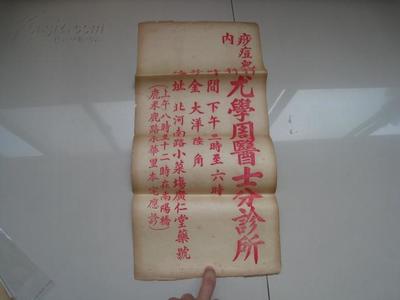 痧痘
内
尤學周醫士分診所
時間 下午二時至六時
診金 大洋陸角
地址 北河南路小菜場廣仁堂藥號
(上午八時至十二時在南陽橋
鹿米鹿路永華里本宅應診)